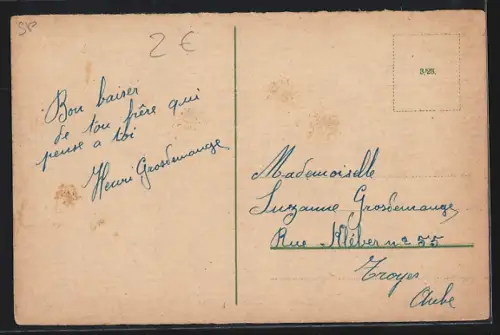 SP
2 €
Bon baiser
de ton frère qui
pense a toi
Henri Grosdemange
3/23.
Mademoiselle
Suzanne Grosdemange
Rue Kléber nº 55
Troyes
Aube